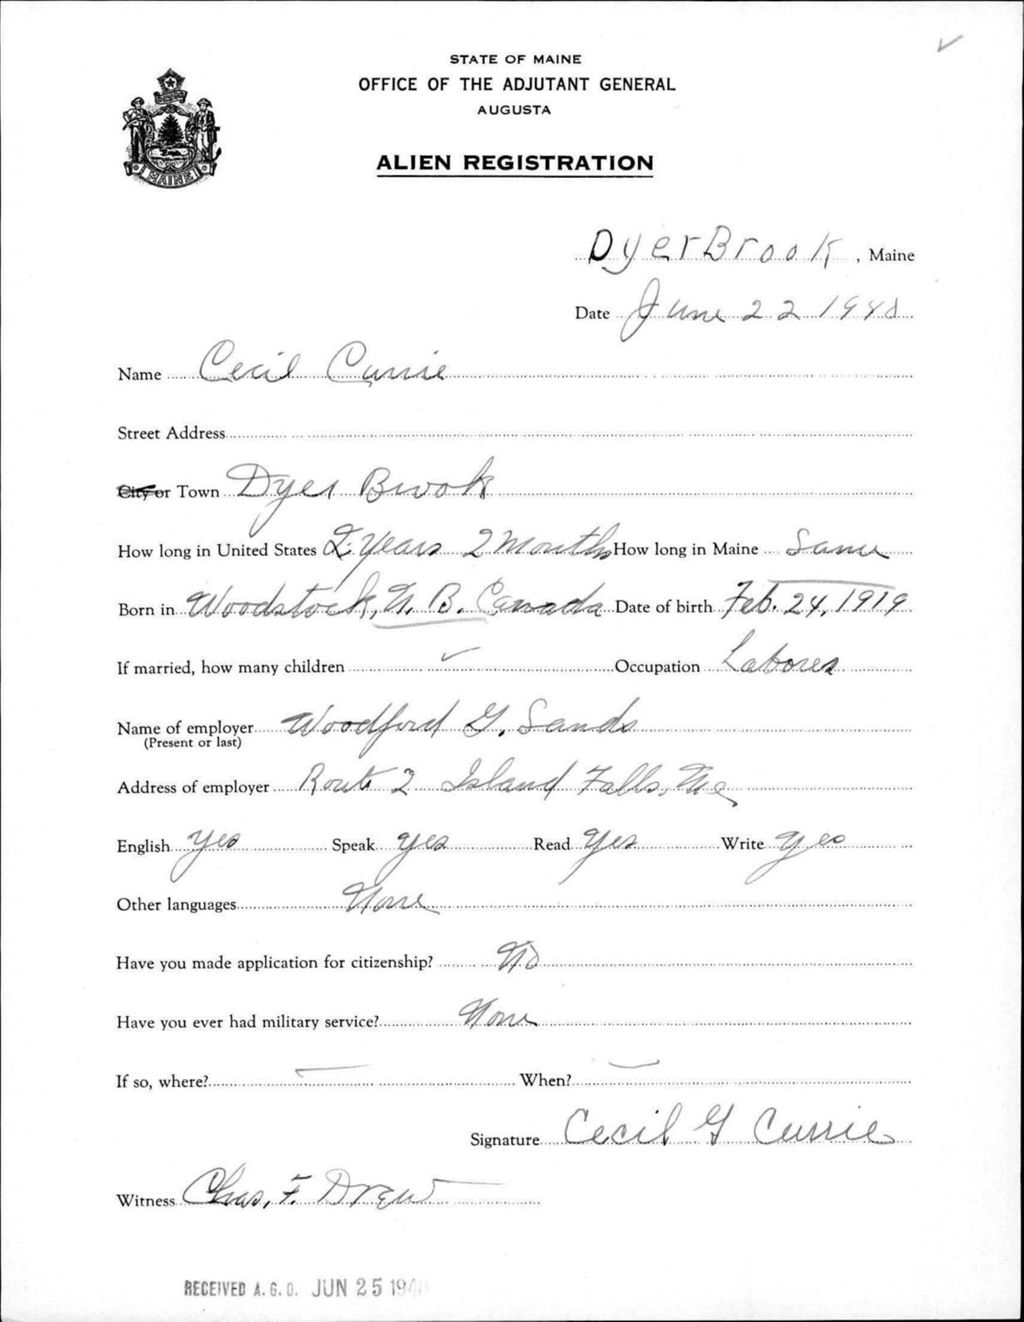 STATE OF MAINE
OFFICE OF THE ADJUTANT GENERAL
AUGUSTA
ALIEN REGISTRATION
MAINE
Dyer Brook, Maine
Date June 22 1940
Name Cecil Currie
Street Address
City or Town Dyer Brook
How long in United States 2 Years 2 Months How long in Maine Same
Born in Woodstock, N. B. Canada Date of birth Feb. 24, 1919
If married, how many children ✓ Occupation Laborer
Name of employer Woodford G. Sands
(Present or last)
Address of employer Route 2 Island Falls, Me
English Yes Speak Yes Read Yes Write Yes
Other languages None
Have you made application for citizenship? No
Have you ever had military service? None
If so, where? When?
Signature Cecil G Currie
Witness Chas. F. Drew
RECEIVED A. G. O. JUN 25 1940